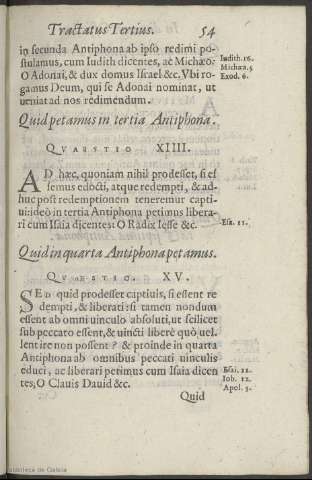 Tractatus Tertius. 54
in secunda Antiphona ab ipso redimi po-
stulamus, cum Iudith dicentes, ac Michæo:
O Adonai, & dux domus Israel &c. Vbi ro-
gamus Deum, qui se Adonai nominat, ut
ueniat ad nos redimendum.
Iudith. 16.
Michææ. 5
Exod. 6.
Quid petamus in tertia Antiphona.
QVAESTIO XIIII.
AD hæc, quoniam nihil prodesset, si es
semus edocti, atque redempti, & ad-
huc post redemptionem teneremur capti-
ui: ideò in tertia Antiphona petimus libera-
ri cum Isaia dicentes: O Radix Iesse &c.
Esa. 11.
Quid in quarta Antiphona petamus.
QVAESTIO. XV.
SED quid prodesset captiuis, si essent re
dempti, & liberati: si tamen nondum
essent ab omni uinculo absoluti, ut scilicet
sub peccato essent, & uincti liberè quò uel-
lent ire non possent? & proinde in quarta
Antiphona ab omnibus peccati uinculis
educi, ac liberari petimus cum Isaia dicen
tes, O Clauis Dauid &c.
Esai. 22.
Iob. 12.
Apol. 3.
Quid
Biblioteca de Galicia